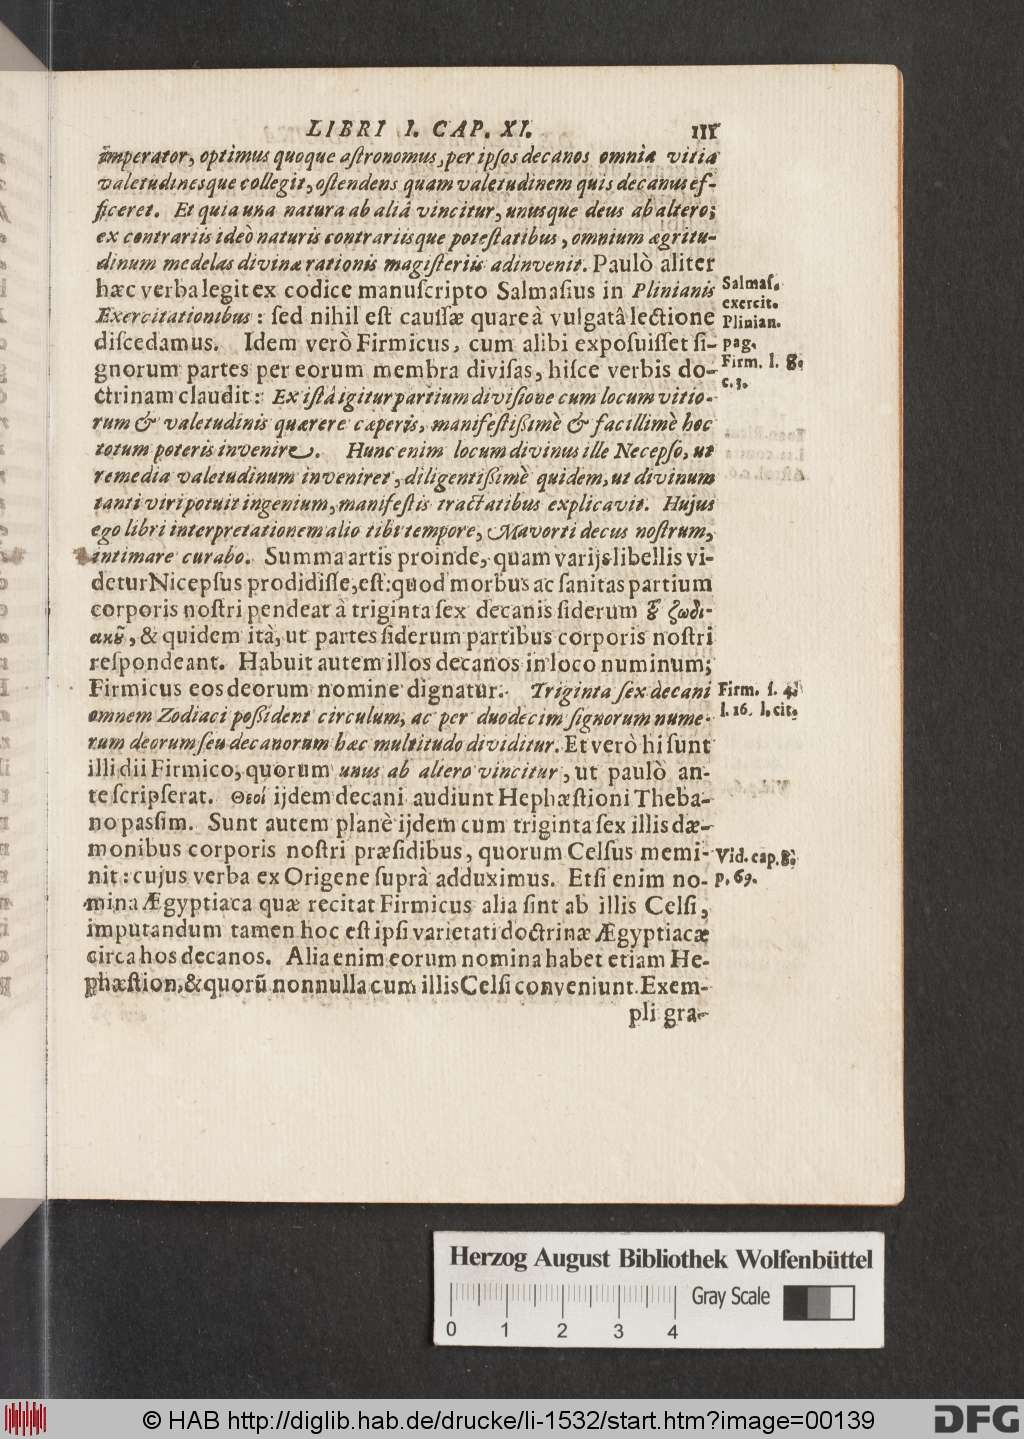 LIBRI I. CAP. XI. 111
imperator, optimus quoque astronomus, per ipsos decanos omnia vitia
valetudinesque collegit, ostendens quam valetudinem quis decanus ef-
ficeret. Et quia una natura ab aliâ vincitur, unusque deus ab altero;
ex contrariis ideò naturis contrariisque potestatibus, omnium ægritu-
dinum medelas divinæ rationis magisteriis adinvenit. Paulò aliter
hæc verba legit ex codice manuscripto Salmasius in Plinianis
Exercitationibus: sed nihil est caussæ quare à vulgatâ lectione
discedamus. Idem verò Firmicus, cum alibi exposuisset si-
gnorum partes per eorum membra divisas, hisce verbis do-
ctrinam claudit: Ex istâ igitur partium divisione cum locum vitio-
rum & valetudinis quærere cæperis, manifestissimè & facillimè hoc
totum poteris invenire. Hunc enim locum divinus ille Necepso, ut
remedia valetudinum inveniret, diligentissimè quidem, ut divinum
tanti viri potuit ingenium, manifestis tractatibus explicavit. Hujus
ego libri interpretationem alio tibi tempore, Mavorti decus nostrum,
intimare curabo. Summa artis proinde, quam varijs libellis vi-
detur Nicepsus prodidisse, est: quod morbus ac sanitas partium
corporis nostri pendeat à triginta sex decanis siderum ȣ͂ ζωδι-
ακȣ͂, & quidem ità, ut partes siderum partibus corporis nostri
respondeant. Habuit autem illos decanos in loco numinum;
Firmicus eos deorum nomine dignatur. Triginta sex decani
omnem Zodiaci possident circulum, ac per duodecim signorum nume-
rum deorum seu decanorum hæc multitudo dividitur. Et verò hi sunt
illi dii Firmico, quorum unus ab altero vincitur, ut paulò an-
te scripserat. Θεοί ijdem decani audiunt Hephæstioni Theba-
no passim. Sunt autem planè ijdem cum triginta sex illis dæ-
monibus corporis nostri præsidibus, quorum Celsus memi-
nit: cujus verba ex Origene suprà adduximus. Etsi enim no-
mina Ægyptiaca quæ recitat Firmicus alia sint ab illis Celsi,
imputandum tamen hoc est ipsi varietati doctrinæ Ægyptiacæ
circa hos decanos. Alia enim eorum nomina habet etiam He-
phæstion, & quorũ nonnulla cum illis Celsi conveniunt. Exem-
pli gra-
Salmas.
exercit.
Plinian.
pag.
Firm. l. 8.
c. 3.
Firm. l. 4.
l. 16. l. cit.
Vid. cap. 8.
p. 69.
Herzog August Bibliothek Wolfenbüttel
0 1 2 3 4 Gray Scale
© HAB http://diglib.hab.de/drucke/li-1532/start.htm?image=00139
DFG